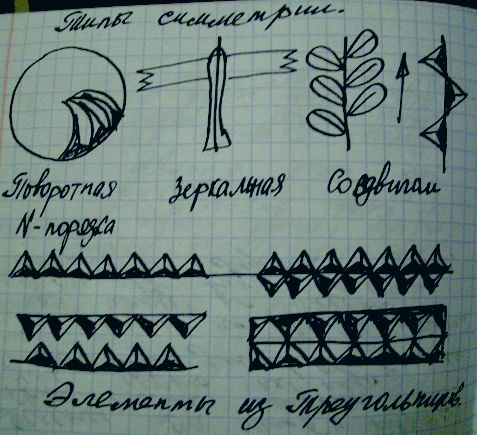 Типы симметрии.
Поворотная Зеркальная Со сдвигом
N-порядка
Элементы из Треугольников.